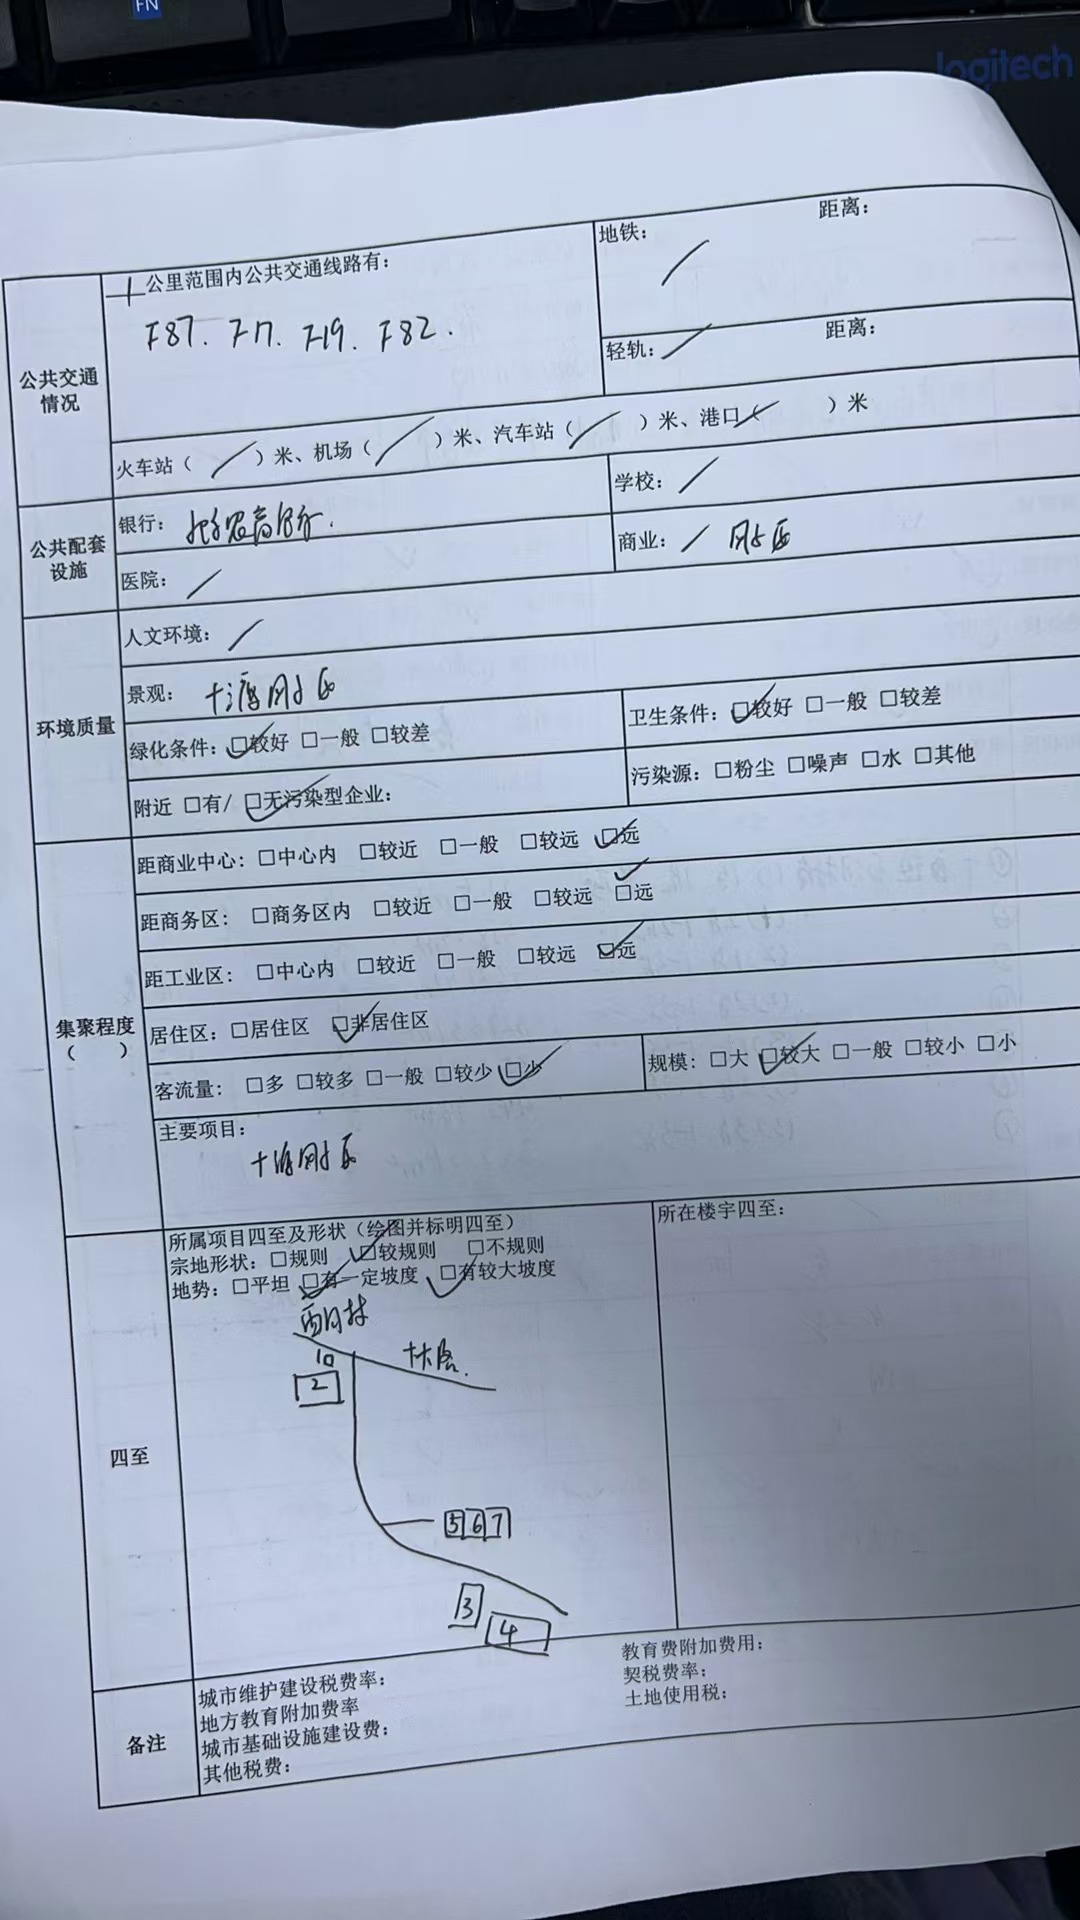 FN
logitech
公共交通情况
十公里范围内公共交通线路有：
F87. F17. F19. F82.
地铁： / 距离：
轻轨： / 距离：
火车站（ / ）米、机场（ / ）米、汽车站（ / ）米、港口（ / ）米
公共配套设施
银行： 农商银行.
学校： /
商业： / 风景区
医院： /
环境质量
人文环境： /
景观： 十渡风景区
绿化条件： ☑较好 □一般 □较差
卫生条件： ☑较好 □一般 □较差
附近 □有/ ☑无污染型企业：
污染源：□粉尘 □噪声 □水 □其他
集聚程度（ ）
距商业中心：□中心内 □较近 □一般 □较远 ☑远
距商务区： □商务区内 □较近 □一般 □较远 ☑远
距工业区：□中心内 □较近 □一般 □较远 ☑远
居住区：□居住区 ☑非居住区
客流量： □多 □较多 □一般 □较少 ☑少
规模：□大 ☑较大 □一般 □较小 □小
主要项目：
十渡风景区
四至
所属项目四至及形状（绘图并标明四至）
宗地形状：□规则 ☑较规则 □不规则
地势：□平坦 ☑有一定坡度 ☑有较大坡度
所在楼宇四至：
2
5 6 7
3
4
备注
城市维护建设税费率：
地方教育附加费率
城市基础设施建设费：
其他税费：
教育费附加费用：
契税费率：
土地使用税：